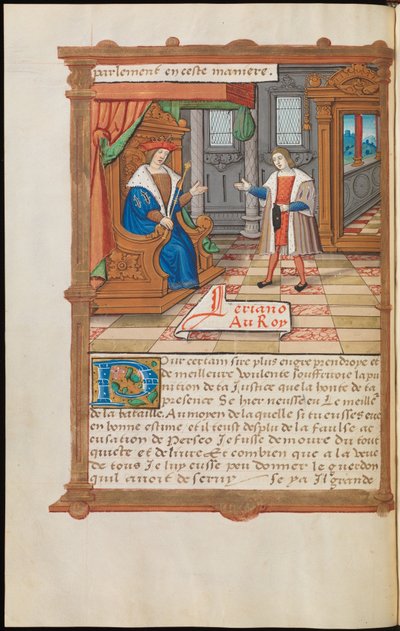 parlement en ceste maniere.
Leriano
Au Roy
Pour certain sire plus en gre prendroye et
de meilleure voulente souffriroie la pu
nition de ta Justice que la honte de ta
presence Se hier neusse eu Le meille
de la bataille. Au moyen de laquelle si tu eusses eue
en bonne estime et il teust desplu de la faulse ac
cusation de Perseo Je fusse demoure du tout
quicte et de livre Et combien que a la veue
de tous Je luy eusse peu donner le guerdon
quil avoit de servy Se ya Il grande